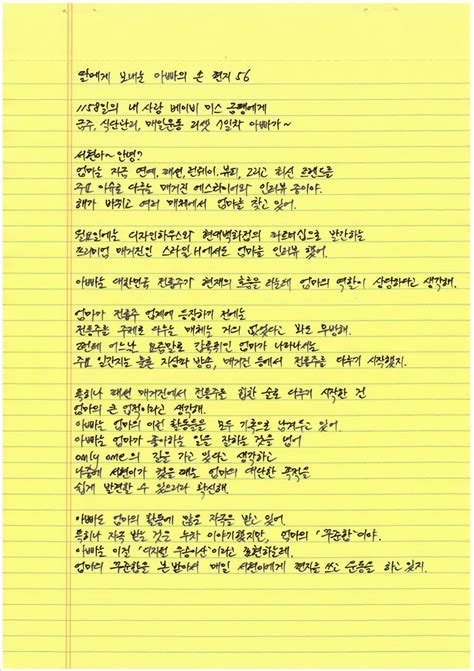 딸에게 보내는 아빠의 손 편지 56
1158일의 내 사랑 베이비 미스 공쟁에게
금주, 식단관리, 매일운동 리셋 7일차 아빠가~
서현아~ 안녕?
엄마는 지금 연예, 패션, 런웨이, 뷰티, 그리고 최신 트렌드를
주요 이슈로 다루는 매거진 에스콰이어와 인터뷰 중이야.
해가 바뀌고 여러 매체에서 엄마를 찾고 있어.
월요일에는 디자인하우스와 현대백화점의 파트너십으로 발간하는
프리미엄 매거진인 스타일 H에서도 엄마를 인터뷰 했어.
아빠는 대한민국 전통주가 현재의 흐름을 타는데 엄마의 역할이 상당하다고 생각해.
엄마가 전통주 업계에 등장하기 전에는
전통주를 주제로 다루는 매체는 거의 없었다고 봐도 무방해.
그런데 어느날 요즘말로 갑툭튀인 엄마가 나타나서는
주요 일간지는 물론 지상파 방송, 매거진 등에서 전통주를 다루기 시작했지.
특히나 패션 매거진에서 전통주를 힙한 술로 다루기 시작한 건
엄마의 큰 업적이라고 생각해.
아빠는 엄마의 이런 활동들을 모두 기록으로 남겨두고 있어.
아빠는 엄마가 좋아하는 일을 잘하는 것을 넘어
only one의 길을 가고 있다고 생각하고
나중에 서현이가 컸을 때는 엄마의 대단한 족적을
쉽게 발견할 수 있으리라 확신해.
아빠도 엄마의 활동에 많은 자극을 받고 있어.
특히나 자극 받는 것은 누차 이야기했지만, 엄마의 '꾸준함'이야.
아빠는 이걸 '디지털 우공이산'이라고 표현하는데,
엄마의 꾸준함을 본 받아서 매일 서현이에게 편지를 쓰고 운동을 하고 있지.